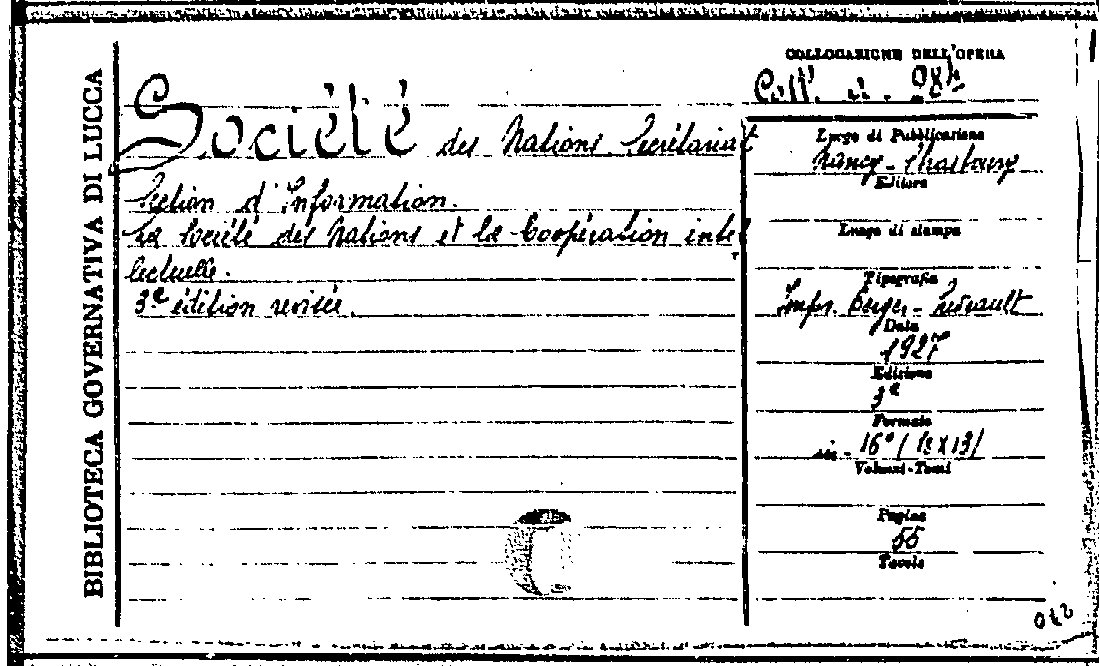 BIBLIOTECA GOVERNATIVA DI LUCCA
Société des Nations Secrétariat
Section d'Information.
La Société des Nations et la Coopération intel
lectuelle.
3e édition revisée.
COLLOCAZIONE DELL'OPERA
Coll.
Luogo di Pubblicazione
Nancy - Strasbourg
Editore
Luogo di stampa
Tipografia
Impr. Berger - Levrault
Data
1927
Edizione
3e
Formato
in - 16°
Volumi-Tomi
Pagine
55
Tavole